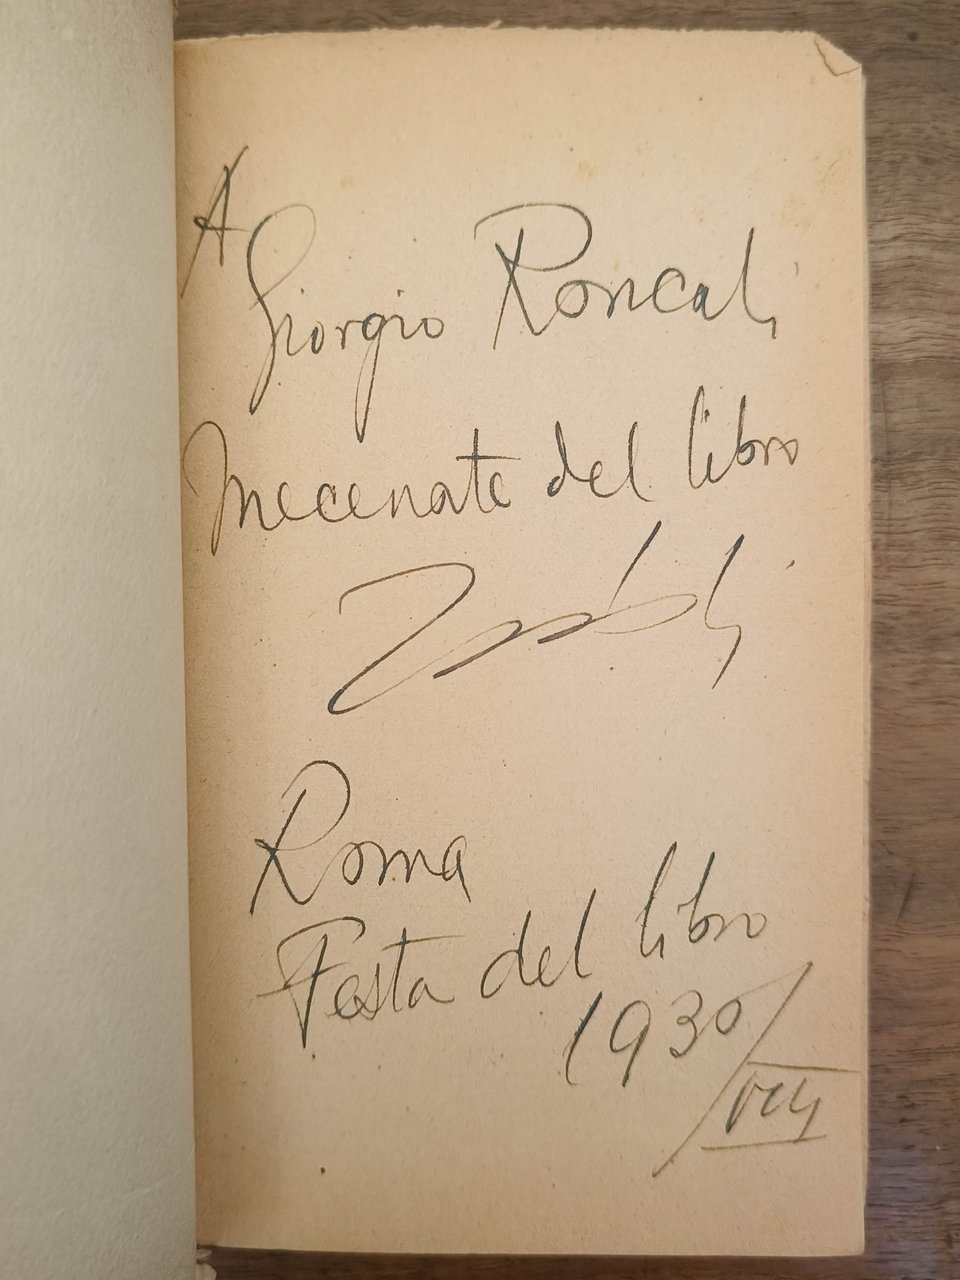 A
Giorgio Roncali
Mecenate del libro
Roma
Festa del libro
1930/VIII